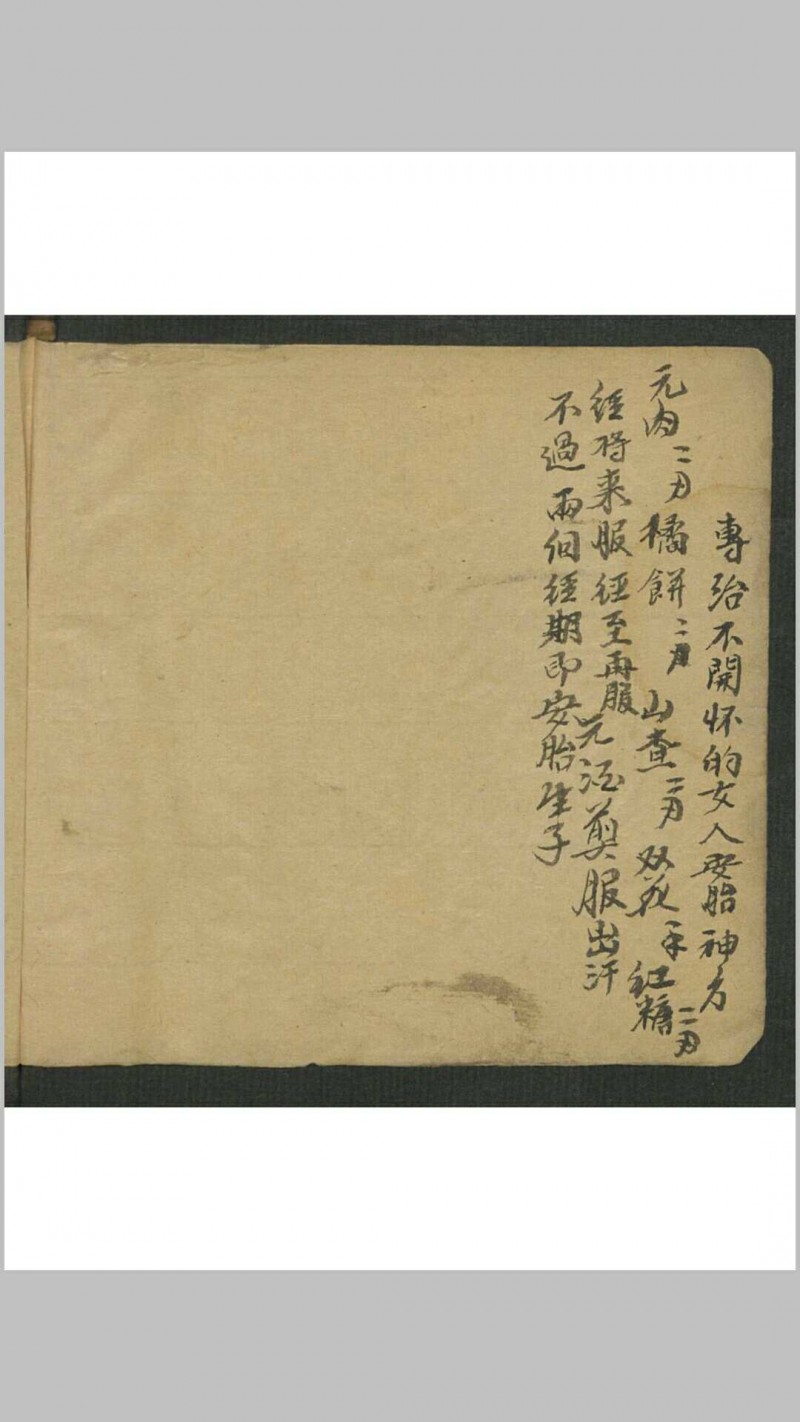 專治不開怀的女人安胎神方
元肉二刃橘餅二刃山查二刃双花紅糖二刃
經将来服經至再服元酒煎服出汗
不過两個經期即安胎生子